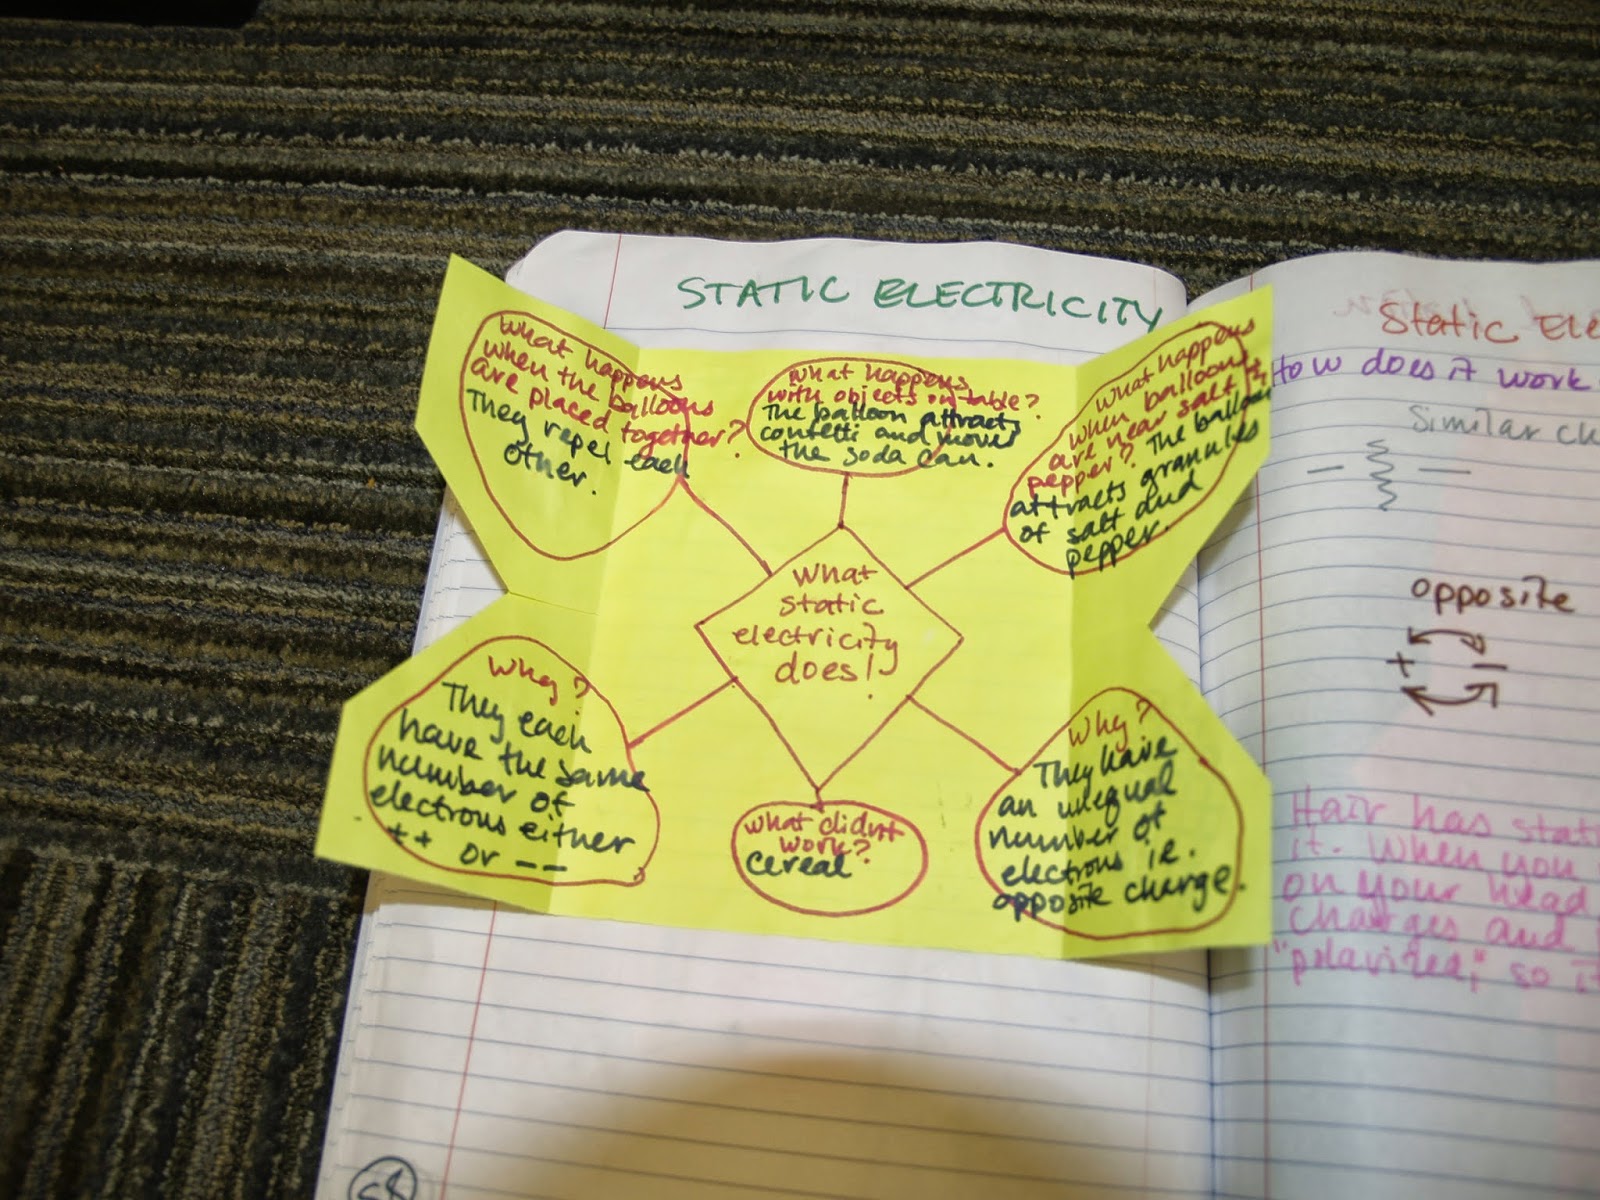 STATIC ELECTRICITY
What happens
when the balloons
are placed together?
They repel each
other.
What happens
with objects on table?
The balloon attracts
confetti and moves
the soda can.
What happens
when balloons
are near salt &
pepper? The balloon
attracts granules
of salt and
pepper.
What
static
electricity
does!
Why?
They each
have the same
number of
electrons either
++ or --
What didn't
work?
Cereal
Why?
They have
an unequal
number of
electrons ie.
opposite charge.
58
Static Ele
How does it work
Similar ch
- -
opposite
+ -
Hair has stat
it. When you
on your head
charges and
"polarized," so it